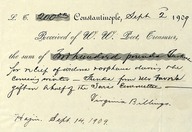 L. C. 200.00 Constantinople, Sept 2 1909
Received of W. W. Peet Treasurer,
the sum of Two hundred pounds
for relief of widows orphans during the
coming winter - Thanks from
gift on behalf of the Committee
Virginia Billings.
Hajin Sept 14, 1909.